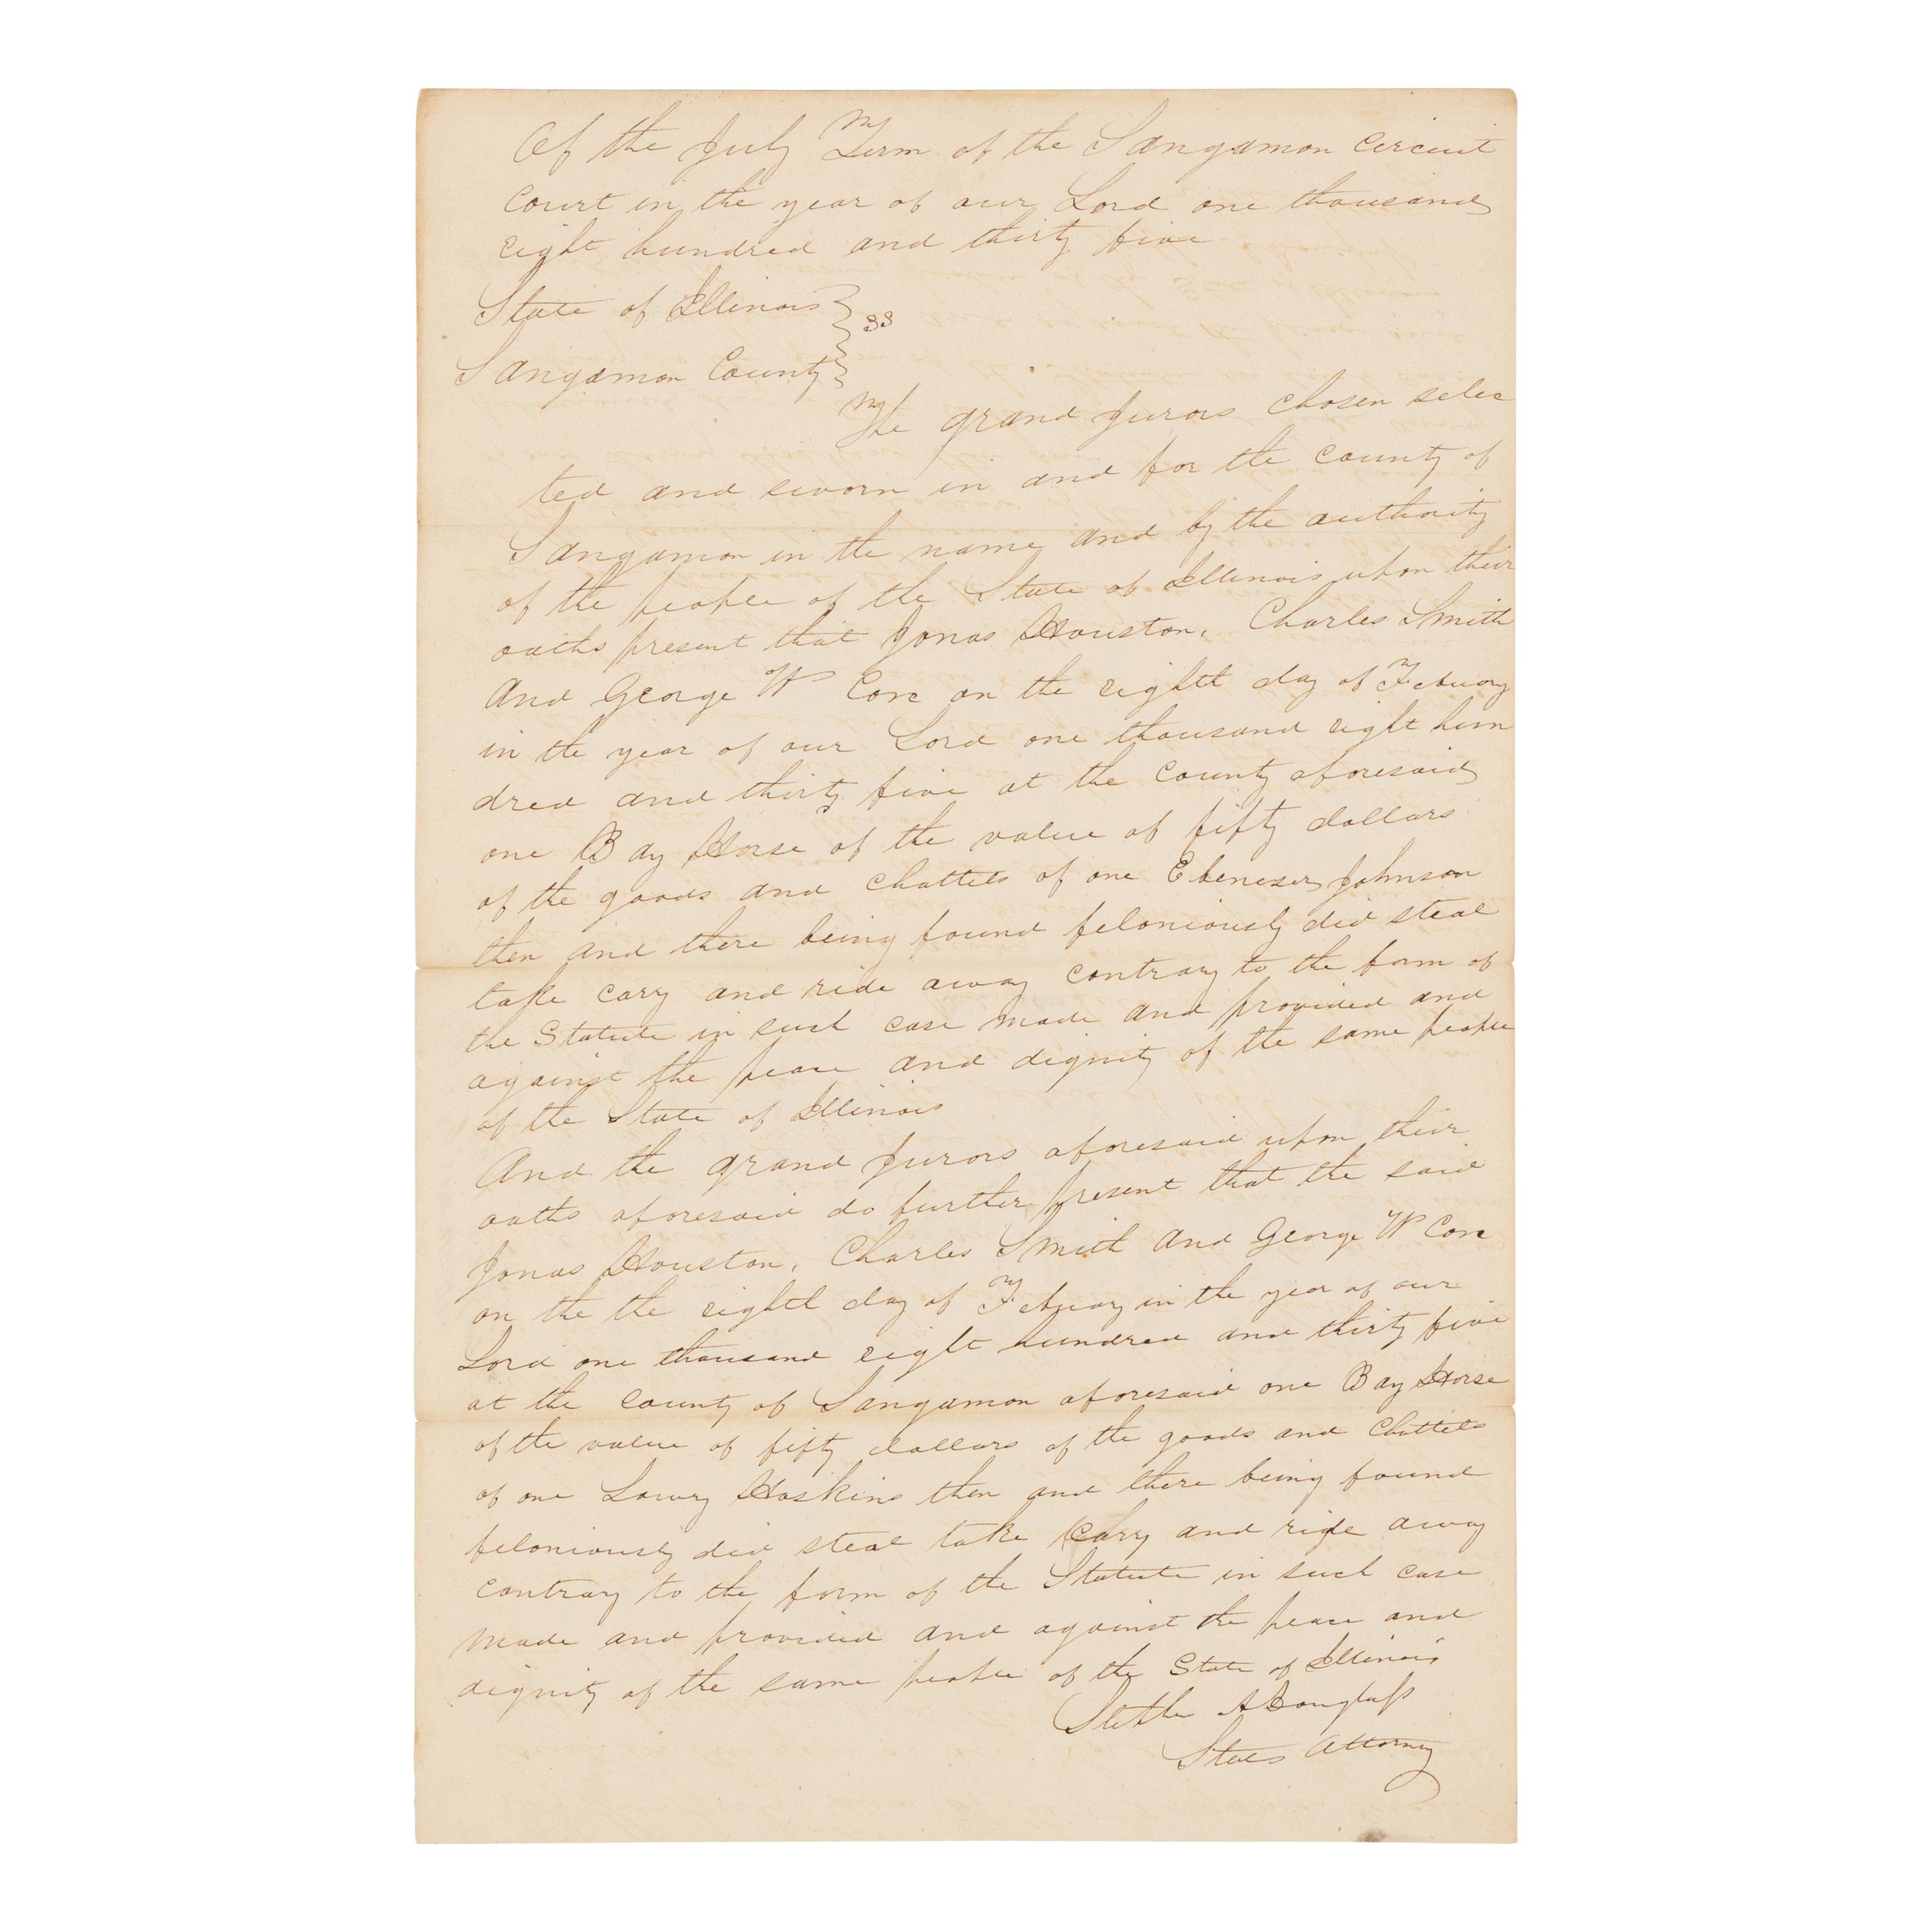 Of the July Term of the Sangamon Circuit
Court in the year of our Lord one thousand
eight hundred and thirty five
State of Illinois
ss
Sangamon County
The grand Jurors chosen selec
ted and sworn in and for the county of
Sangamon in the name and by the authority
of the people of the State of Illinois upon their
oaths present that Jonas Houston, Charles Smith
And George W Core on the eighth day of February
in the year of our Lord one thousand eight hun
dred and thirty five at the county aforesaid
one Bay Horse of the value of fifty dollars
of the goods and chattels of one Ebenezer Johnson
then and there being found feloniously did steal
take cary and ride away contrary to the form of
the Statute in such case made and provided and
against the peace and dignity of the same people
of the State of Illinois
And the grand Jurors aforesaid upon their
oaths aforesaid do further present that the said
Jonas Houston, Charles Smith And George W Core
on the the eighth day of February in the year of our
Lord one thousand eight hundred and thirty five
at the county of Sangamon aforesaid one Bay Horse
of the value of fifty dollars of the goods and Chattels
of one Lowry Hoskins then and there being found
feloniously did steal take carry and ride away
contrary to the form of the Statute in such case
made and provided and against the peace and
dignity of the same people of the State of Illinois
Stephen A Douglass
States Attorney